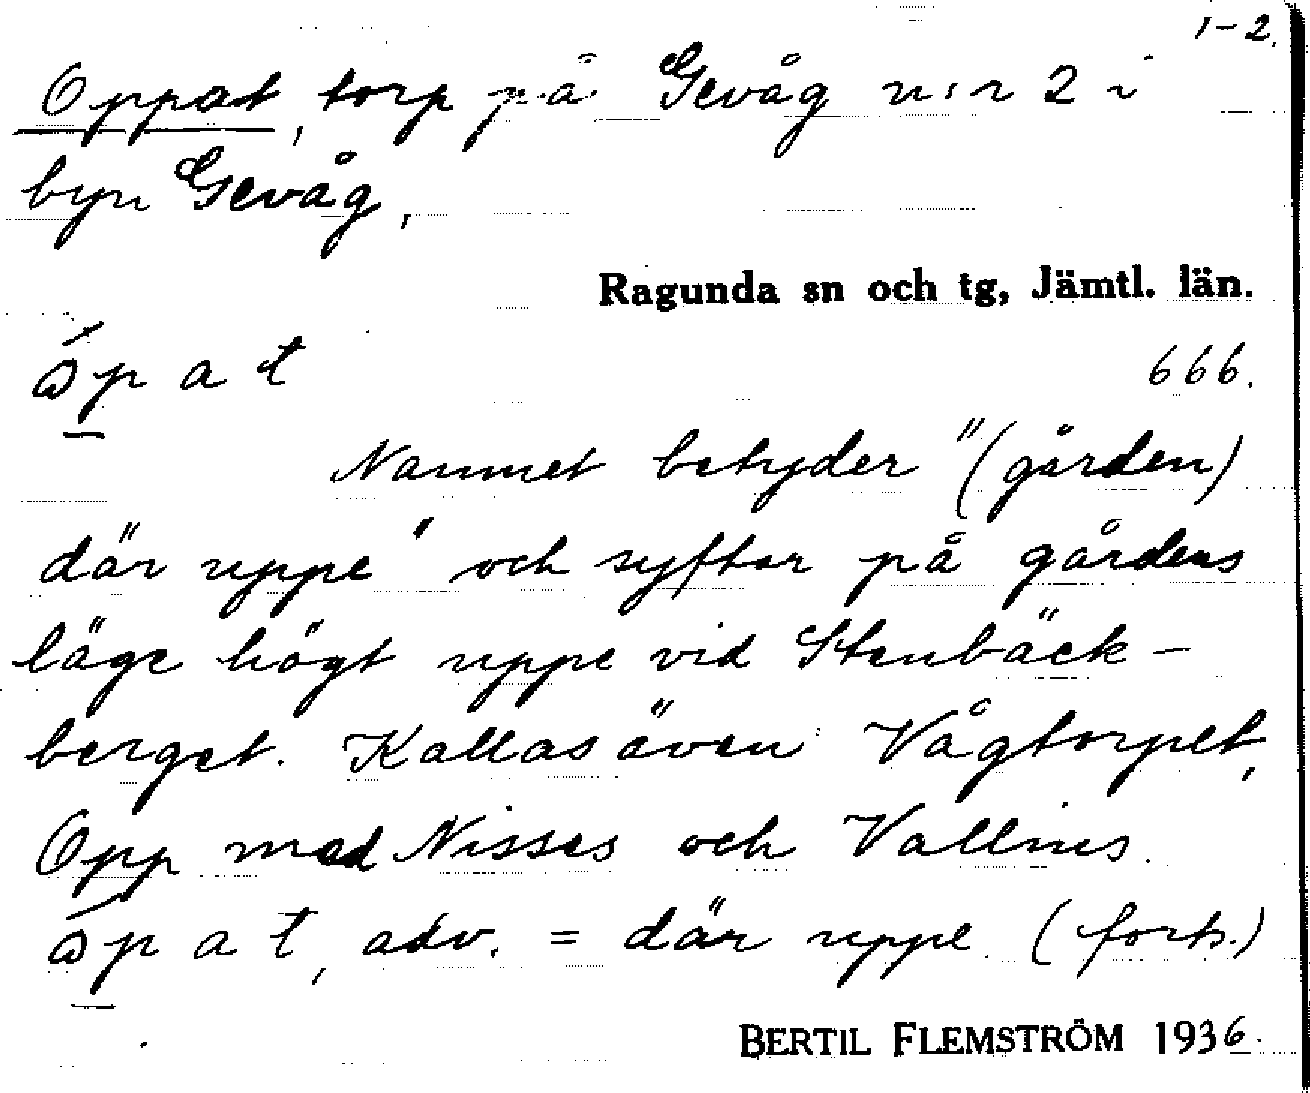 1-2.
Oppat, torp på Gevåg n:r 2 i
byn Gevåg,
Ragunda sn och tg, Jämtl. län.
ɷ́p̲ a t
666.
Namnet betyder "(gården)
där uppe" och syftar på gårdens
läge högt uppe vid Stenbäck-
berget. Kallas även Vågtorpet,
Opp med Nisses och Vallnes.
ɷ́p̲ a t, adv. = där uppe (forts.)
BERTIL FLEMSTRÖM 1936.